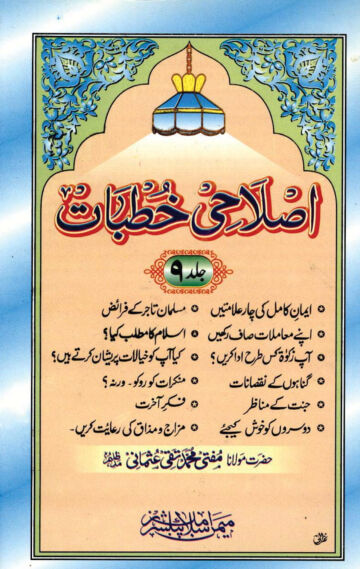 اصلاحی خطبات
جلد ۹
ایمان کامل کی چار علامتیں
مسلمان تاجر کے فرائض
اپنے معاملات صاف رکھیں
اسلام کا مطلب کیا؟
آپ زکوٰۃ کس طرح ادا کریں؟
کیا آپ کو خیالات پریشان کرتے ہیں؟
گناہوں کے نقصانات
منکرات کو روکو۔ ورنہ؟
جنت کے مناظر
فکرِ آخرت
دوسروں کو خوش کیجئے
مزاج و مذاق کی رعایت کریں۔
حضرت مولانا مفتی محمد تقی عثمانی مدظلہم
میمن اسلامک پبلشرز